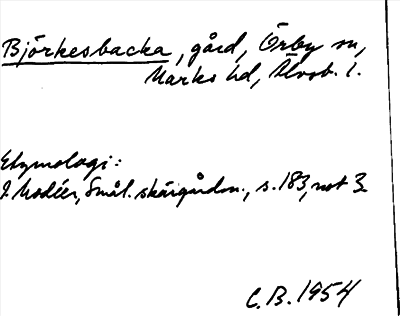 Björkesbacka, gård, Örby sn,
Marks hd, Älvsb. l.
Etymologi:
I. Modéer, Smål. skärgårdsn., s. 183, not 3.
C.B. 1954